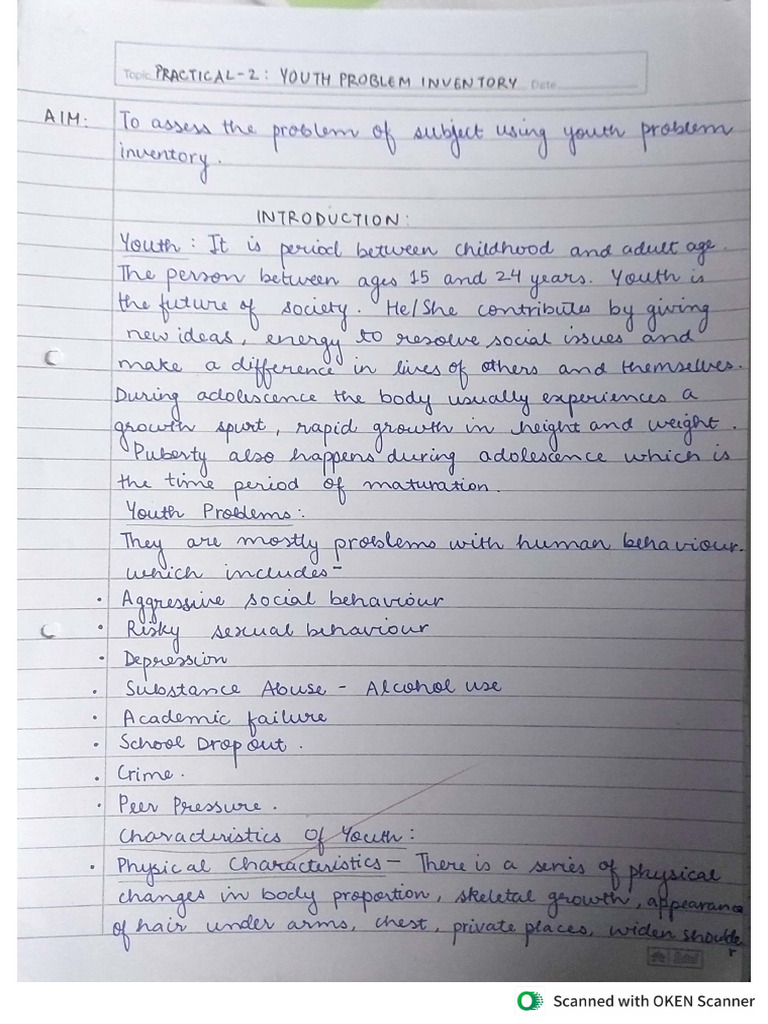 Topic PRACTICAL-2: YOUTH PROBLEM INVENTORY Date
AIM: To assess the problem of subject using youth problem
inventory.
INTRODUCTION:
Youth: It is period between childhood and adult age.
The person between ages 15 and 24 years. Youth is
the future of society. He/She contributes by giving
new ideas, energy to resolve social issues and
make a difference in lives of others and themselves.
During adolescence the body usually experiences a
growth spurt, rapid growth in height and weight.
Puberty also happens during adolescence which is
the time period of maturation.
Youth Problems:
They are mostly problems with human behaviour.
which includes-
• Aggressive social behaviour
• Risky sexual behaviour
• Depression
• Substance Abuse - Alcohol use
• Academic failure
• School Drop out.
• Crime.
• Peer Pressure.
Characteristics Of Youth:
• Physical Characteristics - There is a series of physical
changes in body proportion, skeletal growth, appearance
of hair under arms, chest, private places, widen shoulder
Scanned with OKEN Scanner